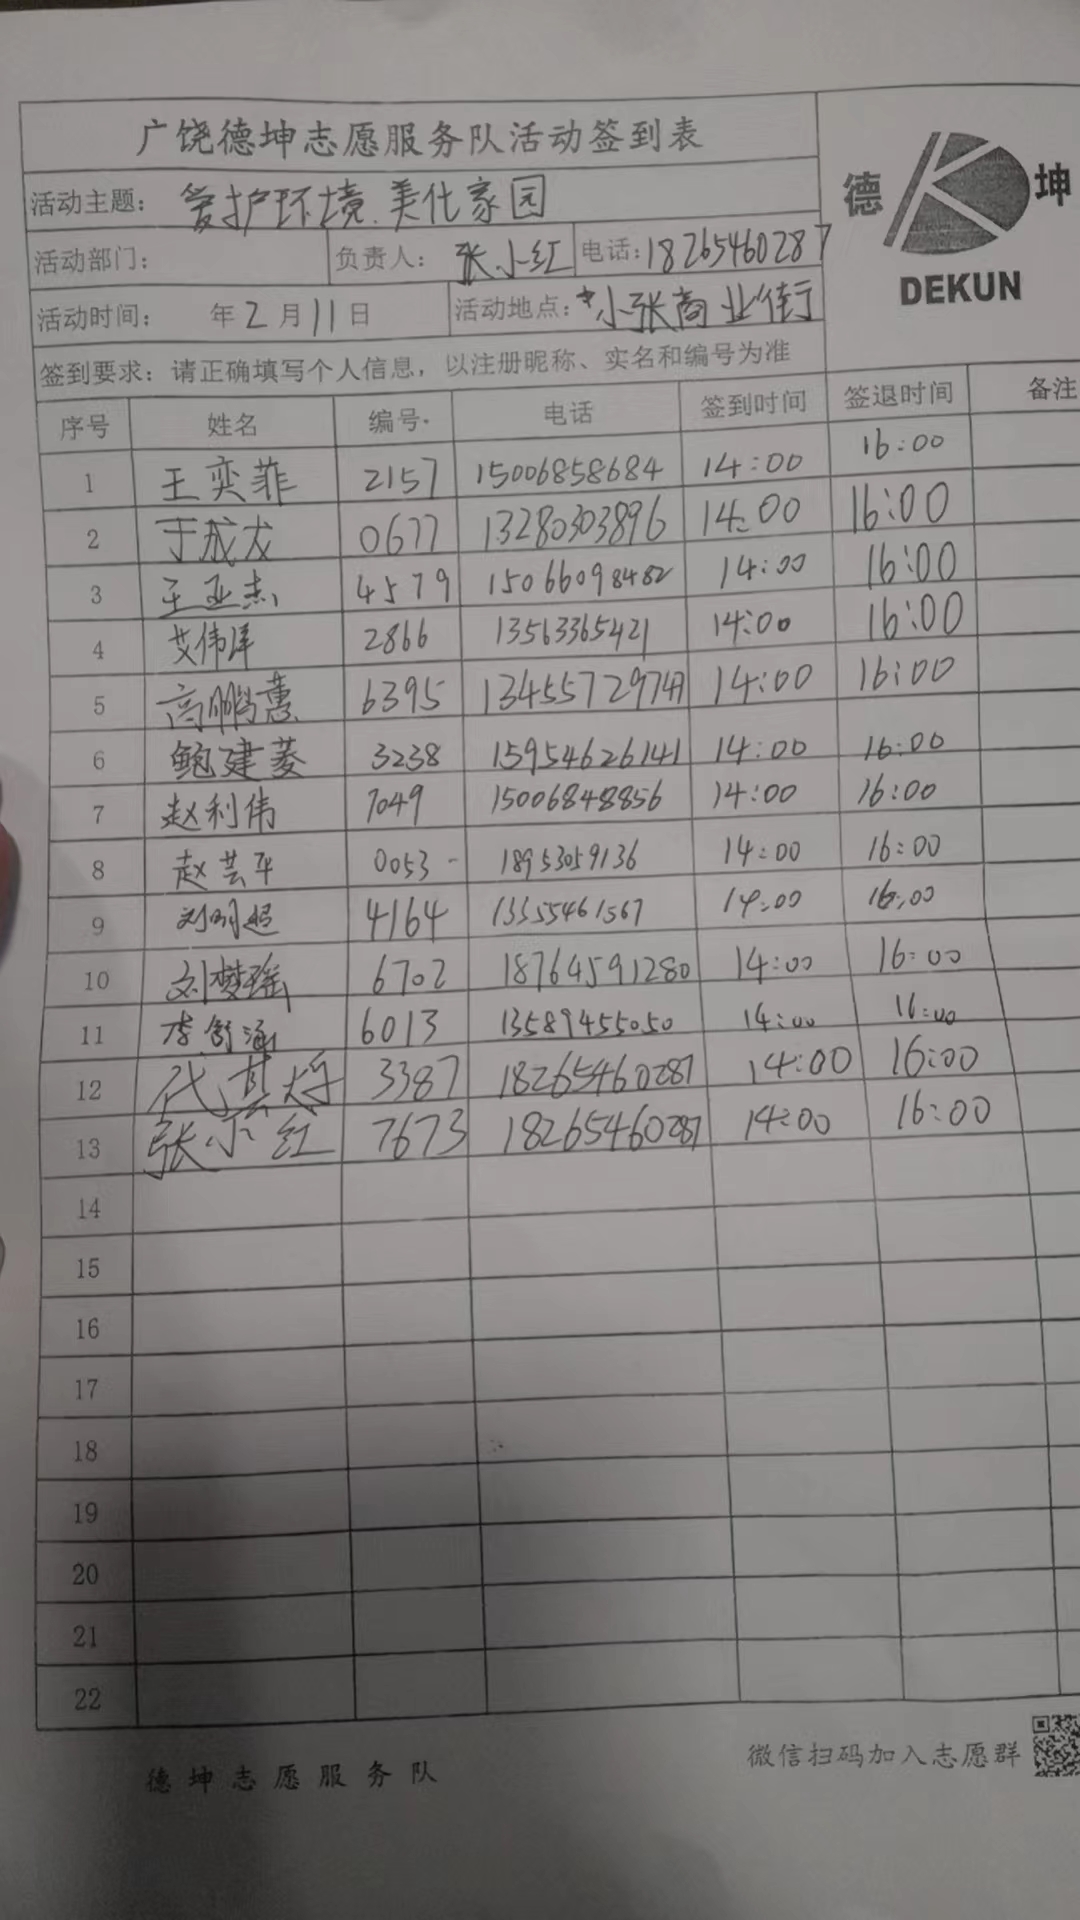 广饶德坤志愿服务队活动签到表
德 坤
DEKUN
活动主题: 爱护环境.美化家园
活动部门: 负责人: 张小红 电话:18265460287
活动时间: 年2月11日 活动地点: 小张商业街
签到要求: 请正确填写个人信息, 以注册昵称、实名和编号为准
序号 姓名 编号 电话 签到时间 签退时间 备注
1 王奕菲 2157 15006858684 14:00 16:00
2 于成龙 0677 13280303896 14:00 16:00
3 王亚杰 4579 15066098482 14:00 16:00
4 艾伟洋 2866 13563365421 14:00 16:00
5 高鹏慧 6395 14:00 16:00
6 鲍建菱 3238 15954626141 14:00 16:00
7 赵利伟 7049 15006848856 14:00 16:00
8 赵芸平 0053 18953059136 14:00 16:00
9 刘明超 4164 13355461567 14:00 16:00
10 刘梦瑶 6702 18764591280 14:00 16:00
11 李舒涵 6013 13589455050 14:00 16:00
12 代其将 3387 18265460287 14:00 16:00
13 张小红 7673 18265460287 14:00 16:00
14
15
16
17
18
19
20
21
22
德坤志愿服务队 微信扫码加入志愿群